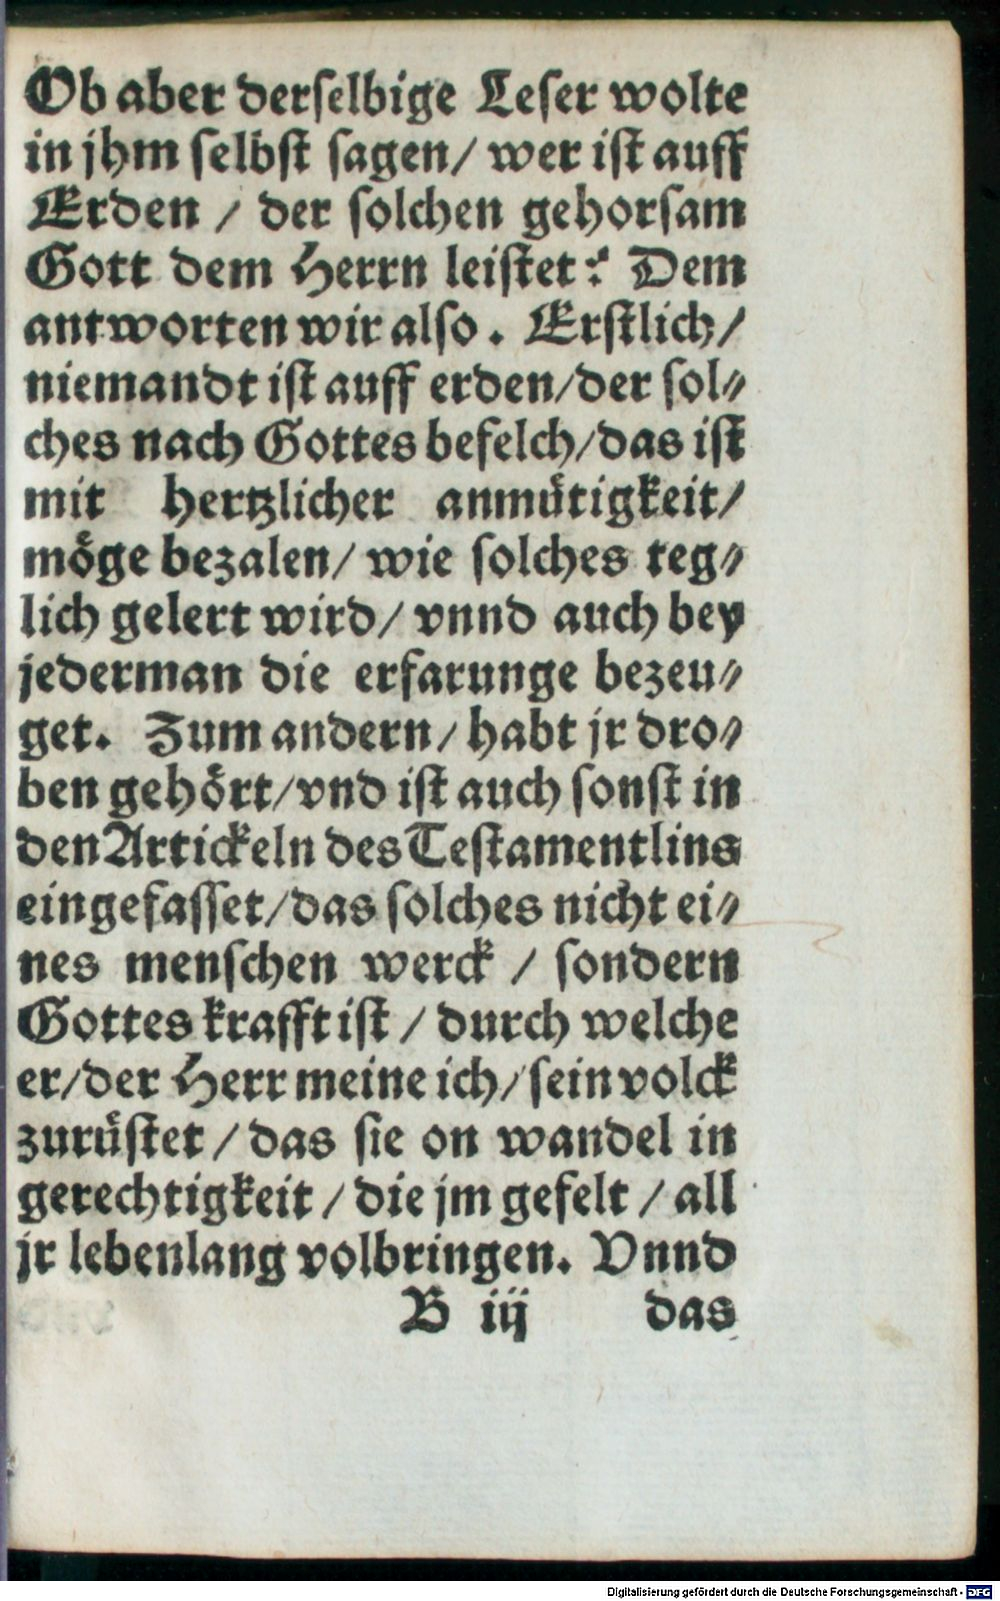 Ob aber derſelbige Leſer wolte
in jhm ſelbſt ſagen/ wer iſt auff
Erden / der ſolchen gehorſam
Gott dem Herrn leiſtet? Dem
antworten wir alſo. Erſtlich/
niemandt iſt auff erden/der ſol⸗
ches nach Gottes befelch/das iſt
mit hertzlicher anmuͤtigkeit/
moͤge bezalen/ wie ſolches teg⸗
lich gelert wird/ vnnd auch bey
jederman die erfarunge bezeu⸗
get. Zum andern/ habt jr dro⸗
ben gehoͤrt/vnd iſt auch ſonſt in
den Artickeln des Teſtamentlins
eingefaſſet/das ſolches nicht ei⸗
nes menſchen werck / ſondern
Gottes krafft iſt / durch welche
er/der Herr meine ich/ ſein volck
zuruͤſtet / das ſie on wandel in
gerechtigkeit / die jm gefelt / all
jr lebenlang volbringen. Vnnd
B iij das
Digitalisierung gefördert durch die Deutsche Forschungsgemeinschaft - DFG